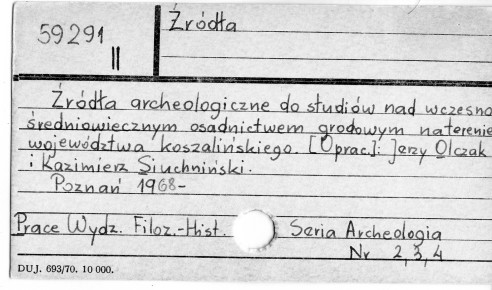 59291
II
Źródła
Źródła archeologiczne do studiów nad wczesno
średniowiecznym osadnictwem grodowym na terenie
województwa koszalińskiego. [Oprac.]: Jerzy Olczak
i Kazimierz Siuchniński.
Poznań 1968-
Prace Wydz. Filoz.-Hist. Seria Archeologia
Nr 2,3,4
DUJ. 693/70. 10 000.